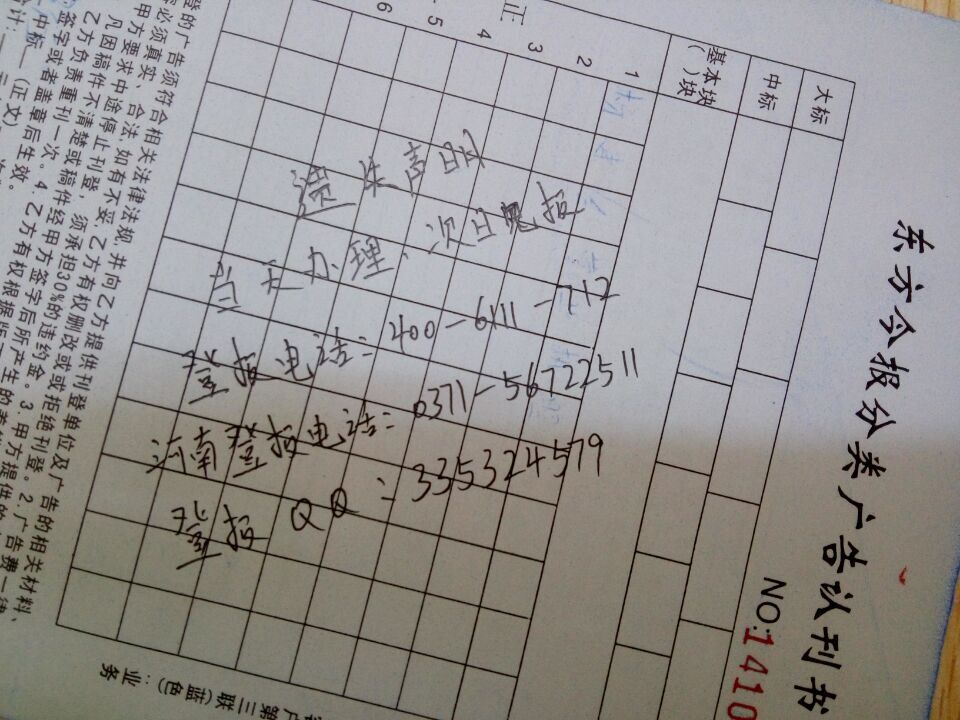 东方今报分类广告认刊书
NO:1410
大标
中标
基本块
( )块
正
1
2
3
4
5
6
遗失声明
当天办理、次日见报
登报电话：400-6111-712
河南登报电话：0371-56722511
登报QQ：335324579
登的广告须符合相关法律法规，并向乙方提供刊登单位及广告的相关材料、
必须真实、合法，如有不妥，乙方有权删改或拒绝刊登。2.广告费一律
甲方要求中途停止刊登，须承担30%的违约金。3.甲方提供的
凡因稿件不清楚或稿件经甲方签字后所产生的
乙方负责重刊一次。4.乙方有权根据版
签字或者盖章后生效。
中标一 (正文)
计：
户第三联(蓝色)：业务